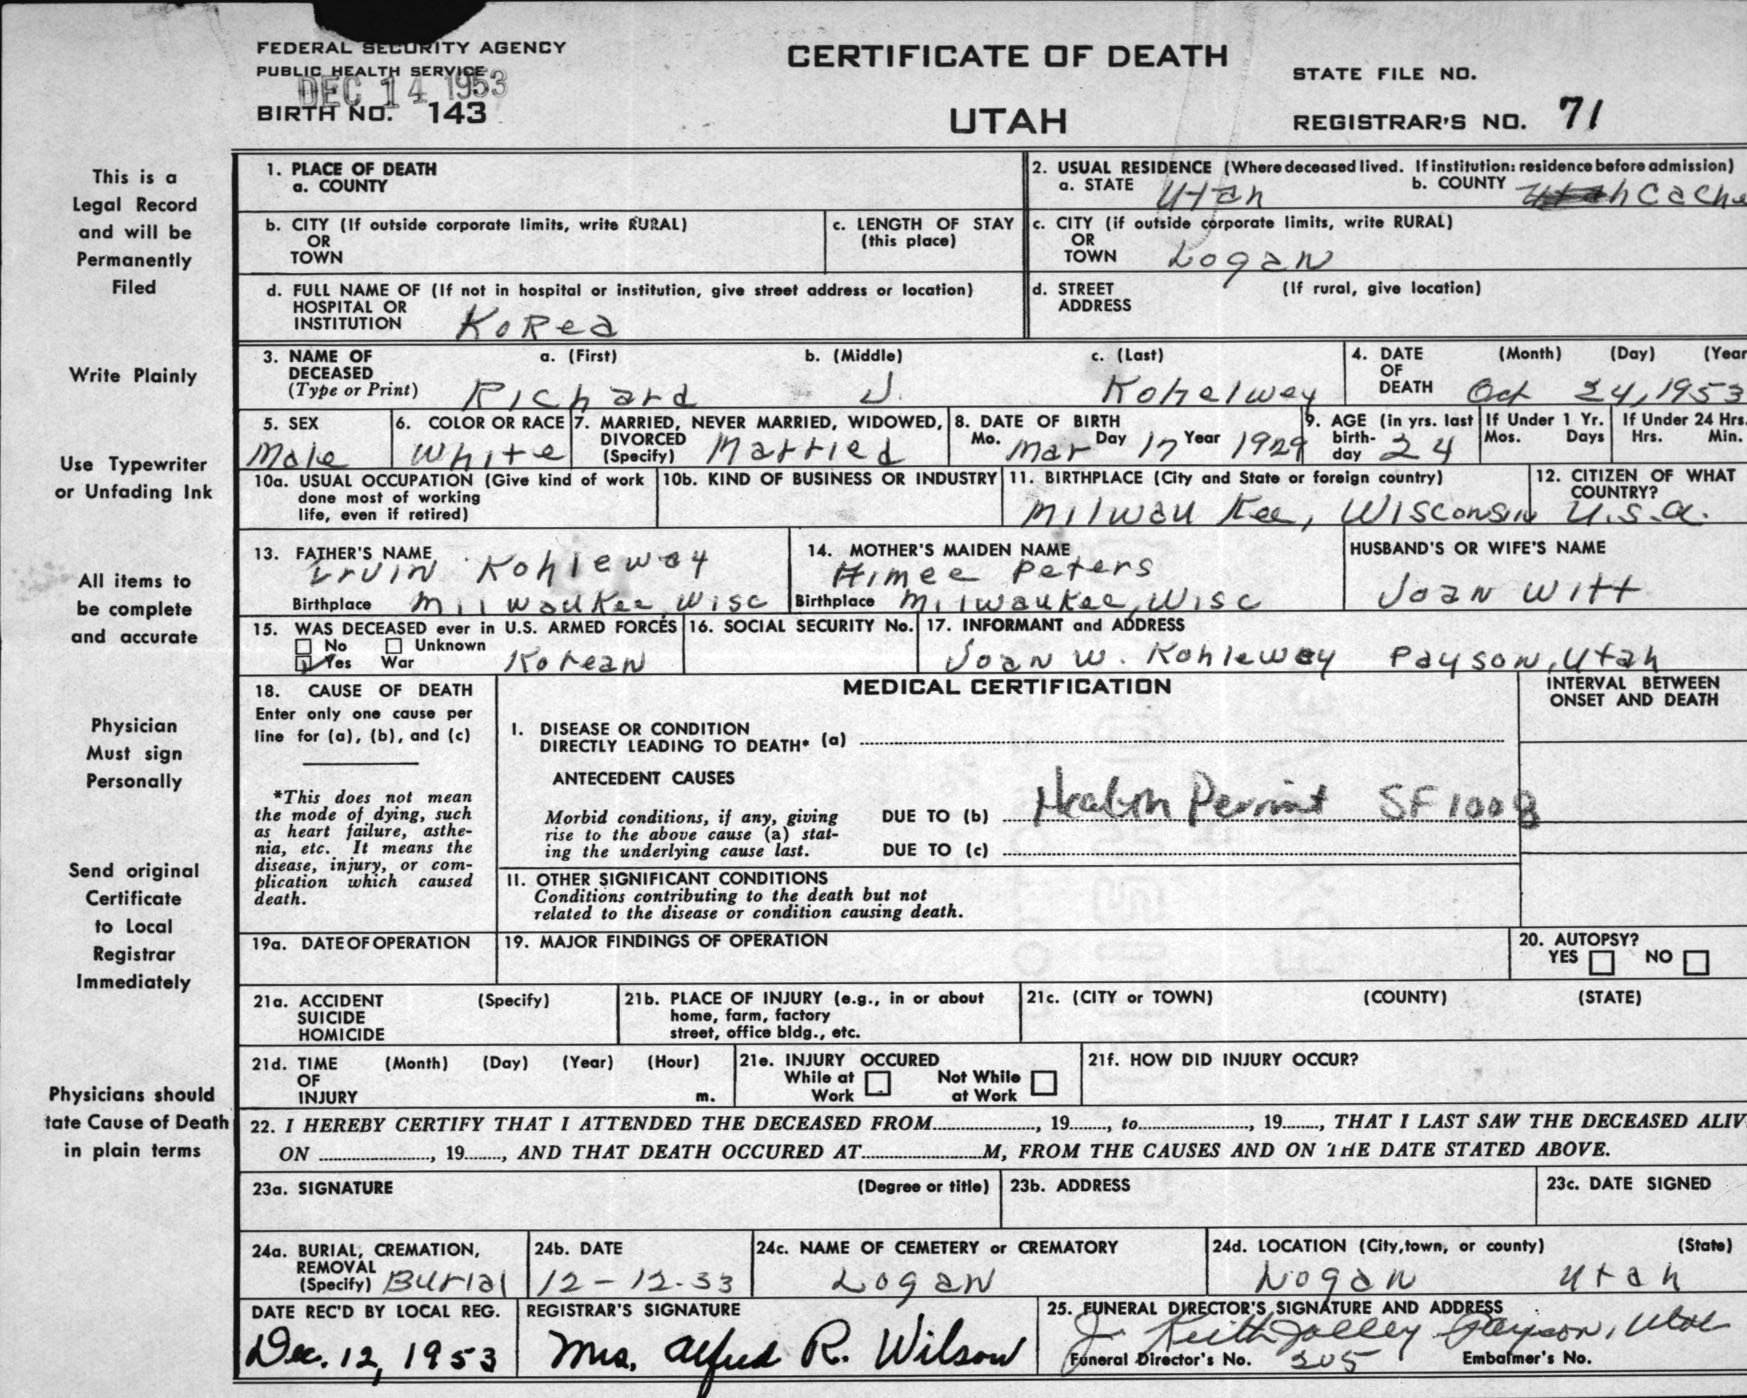 FEDERAL SECURITY AGENCY
PUBLIC HEALTH SERVICE
DEC 14 1953
BIRTH NO. 143
CERTIFICATE OF DEATH
UTAH
STATE FILE NO.
REGISTRAR'S NO. 71
This is a
Legal Record
and will be
Permanently
Filed
Write Plainly
Use Typewriter
or Unfading Ink
All items to
be complete
and accurate
Physician
Must sign
Personally
Send original
Certificate
to Local
Registrar
Immediately
Physicians should
tate Cause of Death
in plain terms
1. PLACE OF DEATH
a. COUNTY
2. USUAL RESIDENCE (Where deceased lived. If institution: residence before admission)
a. STATE Utah b. COUNTY Cache
b. CITY (If outside corporate limits, write RURAL)
OR
TOWN
c. LENGTH OF STAY
(this place)
c. CITY (if outside corporate limits, write RURAL)
OR
TOWN Logan
d. FULL NAME OF (If not in hospital or institution, give street address or location)
HOSPITAL OR
INSTITUTION Korea
d. STREET (If rural, give location)
ADDRESS
3. NAME OF a. (First) b. (Middle) c. (Last)
DECEASED
(Type or Print) Richard J. Kohelwey
4. DATE (Month) (Day) (Year
OF
DEATH Oct 24, 1953
5. SEX
Male
6. COLOR OR RACE
White
7. MARRIED, NEVER MARRIED, WIDOWED,
DIVORCED
(Specify) Married
8. DATE OF BIRTH
Mo. Mar Day 17 Year 1929
9. AGE (in yrs. last
birth-
day 24
If Under 1 Yr.
Mos. Days
If Under 24 Hrs.
Hrs. Min.
10a. USUAL OCCUPATION (Give kind of work
done most of working
life, even if retired)
10b. KIND OF BUSINESS OR INDUSTRY
11. BIRTHPLACE (City and State or foreign country)
Milwau Kee, Wisconsin
12. CITIZEN OF WHAT
COUNTRY?
U.S.a.
13. FATHER'S NAME
Irvin Kohleway
Birthplace Milwaukee, Wisc
14. MOTHER'S MAIDEN NAME
Aimee Peters
Birthplace Milwaukee, Wisc
HUSBAND'S OR WIFE'S NAME
Joan Witt
15. WAS DECEASED ever in U.S. ARMED FORCES
No Unknown
Yes War Korean
16. SOCIAL SECURITY No.
17. INFORMANT and ADDRESS
Joan W. Kohleway Payson, Utah
18. CAUSE OF DEATH
Enter only one cause per
line for (a), (b), and (c)
*This does not mean
the mode of dying, such
as heart failure, asthe-
nia, etc. It means the
disease, injury, or com-
plication which caused
death.
MEDICAL CERTIFICATION
INTERVAL BETWEEN
ONSET AND DEATH
I. DISEASE OR CONDITION
DIRECTLY LEADING TO DEATH* (a)
ANTECEDENT CAUSES
Morbid conditions, if any, giving
rise to the above cause (a) stat-
ing the underlying cause last.
DUE TO (b) Permit SF 1008
DUE TO (c)
II. OTHER SIGNIFICANT CONDITIONS
Conditions contributing to the death but not
related to the disease or condition causing death.
19a. DATE OF OPERATION
19. MAJOR FINDINGS OF OPERATION
20. AUTOPSY?
YES NO
21a. ACCIDENT (Specify)
SUICIDE
HOMICIDE
21b. PLACE OF INJURY (e.g., in or about
home, farm, factory
street, office bldg., etc.
21c. (CITY or TOWN) (COUNTY) (STATE)
21d. TIME (Month) (Day) (Year) (Hour)
OF
INJURY m.
21e. INJURY OCCURED
While at Not While
Work at Work
21f. HOW DID INJURY OCCUR?
22. I HEREBY CERTIFY THAT I ATTENDED THE DECEASED FROM, 19, to, 19, THAT I LAST SAW THE DECEASED ALIV
ON, 19, AND THAT DEATH OCCURED AT M, FROM THE CAUSES AND ON THE DATE STATED ABOVE.
23a. SIGNATURE (Degree or title)
23b. ADDRESS
23c. DATE SIGNED
24a. BURIAL, CREMATION,
REMOVAL
(Specify) Burial
24b. DATE
12-12-53
24c. NAME OF CEMETERY or CREMATORY
Logan
24d. LOCATION (City, town, or county) (State)
Logan Utah
DATE REC'D BY LOCAL REG.
Dec. 12, 1953
REGISTRAR'S SIGNATURE
Mrs. Alfred R. Wilson
25. FUNERAL DIRECTOR'S SIGNATURE AND ADDRESS
J. Keith Jolley Payson, Utah
Funeral Director's No. 205 Embalmer's No.